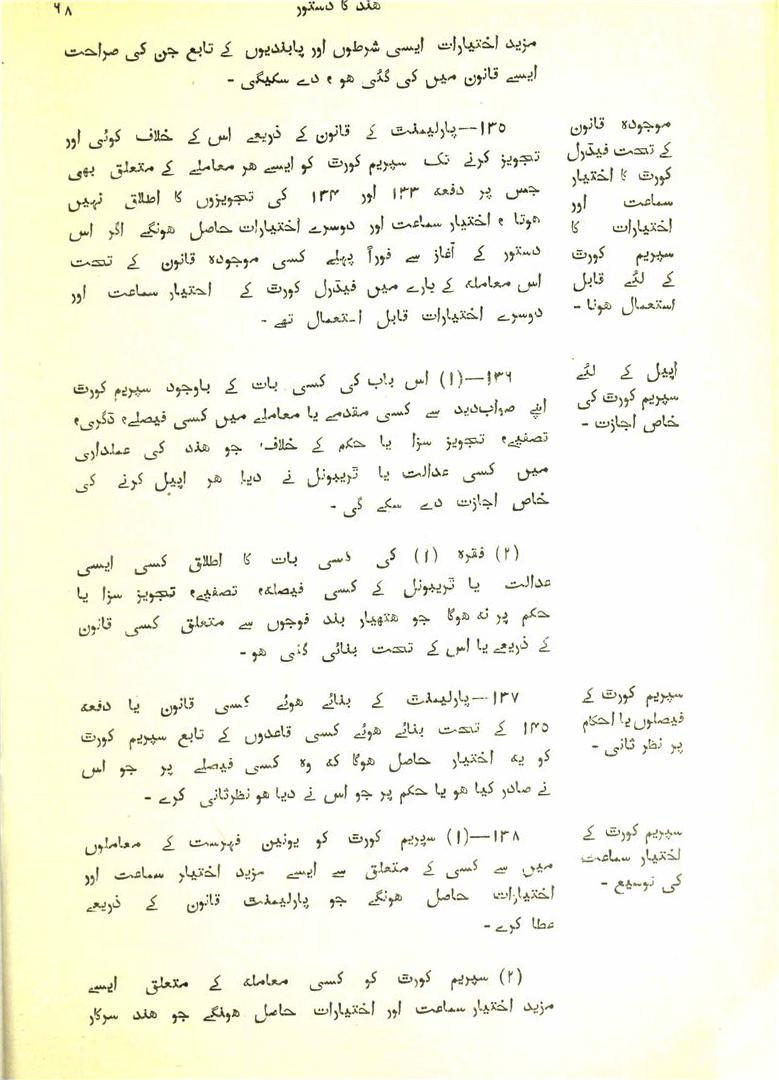 ھند کا دستور
۶۸
مزید اختیارات ایسی شرطوں اور پابندیوں کے تابع جن کی صراحت
ایسے قانون میں کی گئی ھو ، دے سکیگی -
موجودہ قانون
کے تحت فیڈرل
کورٹ کا اختیار
سماعت اور
اختیارات کا
سپریم کورٹ
کے لئے قابل
استعمال ھونا -
۱۳۵—پارلیمنٹ کے قانون کے ذریعے اس کے خلاف کوئی اور
تجویز کرنے تک سپریم کورٹ کو ایسے ھر معاملے کے متعلق بھی
جس پر دفعہ ۱۳۳ اور ۱۳۴ کی تجویزوں کا اطلاق نہیں
ھوتا ، اختیار سماعت اور دوسرے اختیارات حاصل ھونگے اگر اس
دستور کے آغاز سے فوراً پہلے کسی موجودہ قانون کے تحت
اس معاملہ کے بارے میں فیڈرل کورٹ کے اختیار سماعت اور
دوسرے اختیارات قابل استعمال تھے -
اپیل کے لئے
سپریم کورٹ کی
خاص اجازت -
۱۳۶—(۱) اس باب کی کسی بات کے باوجود سپریم کورٹ
اپنے صوابدید سے کسی مقدمے یا معاملے میں کسی فیصلے، ڈگری،
تصفیے، تجویز سزا یا حکم کے خلاف، جو ھند کی عملداری
میں کسی عدالت یا ٹریبونل نے دیا ھر اپیل کرنے کی
خاص اجازت دے سکے گی -
(۲) فقرہ (۱) کی کسی بات کا اطلاق کسی ایسی
عدالت یا ٹریبونل کے کسی فیصلہ، تصفیے، تجویز سزا یا
حکم پر نہ ھوگا جو ھتھیار بند فوجوں سے متعلق کسی قانون
کے ذریعے یا اس کے تحت بنائی گئی ھو -
سپریم کورٹ کے
فیصلوں یا احکام
پر نظر ثانی -
۱۳۷—پارلیمنٹ کے بنائے ھوئے کسی قانون یا دفعہ
۱۴۵ کے تحت بنائے ھوئے کسی قاعدوں کے تابع سپریم کورٹ
کو یہ اختیار حاصل ھوگا کہ وہ کسی فیصلے پر جو اس
نے صادر کیا ھو یا حکم پر جو اس نے دیا ھو نظرثانی کرے -
سپریم کورٹ کے
اختیار سماعت
کی توسیع -
۱۳۸—(۱) سپریم کورٹ کو یونین فہرست کے معاملوں
میں سے کسی کے متعلق سے ایسے مزید اختیار سماعت اور
اختیارات حاصل ھونگے جو پارلیمنٹ قانون کے ذریعے
عطا کرے -
(۲) سپریم کورٹ کو کسی معاملہ کے متعلق ایسے
مزید اختیار سماعت اور اختیارات حاصل ھونگے جو ھند سرکار